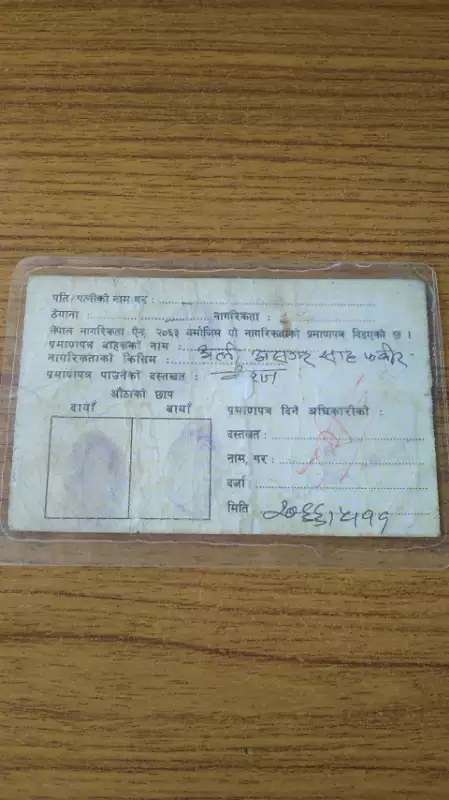 पति/पत्नीको नाम थर :
ठेगाना : नागरिकता :
नेपाल नागरिकता ऐन, २०६३ बमोजिम यो नागरिकताको प्रमाणपत्र दिइएको छ ।
प्रमाणपत्र बाहकको नाम : अली असगर साह फकीर
नागरिकताको किसिम : वंशज
प्रमाणपत्र पाउनेको दस्तखत :
औंठाको छाप
दायाँ बायाँ
प्रमाणपत्र दिने अधिकारीको :
दस्तखत :
नाम, थर :
दर्जा
मिति २०६६।५।११